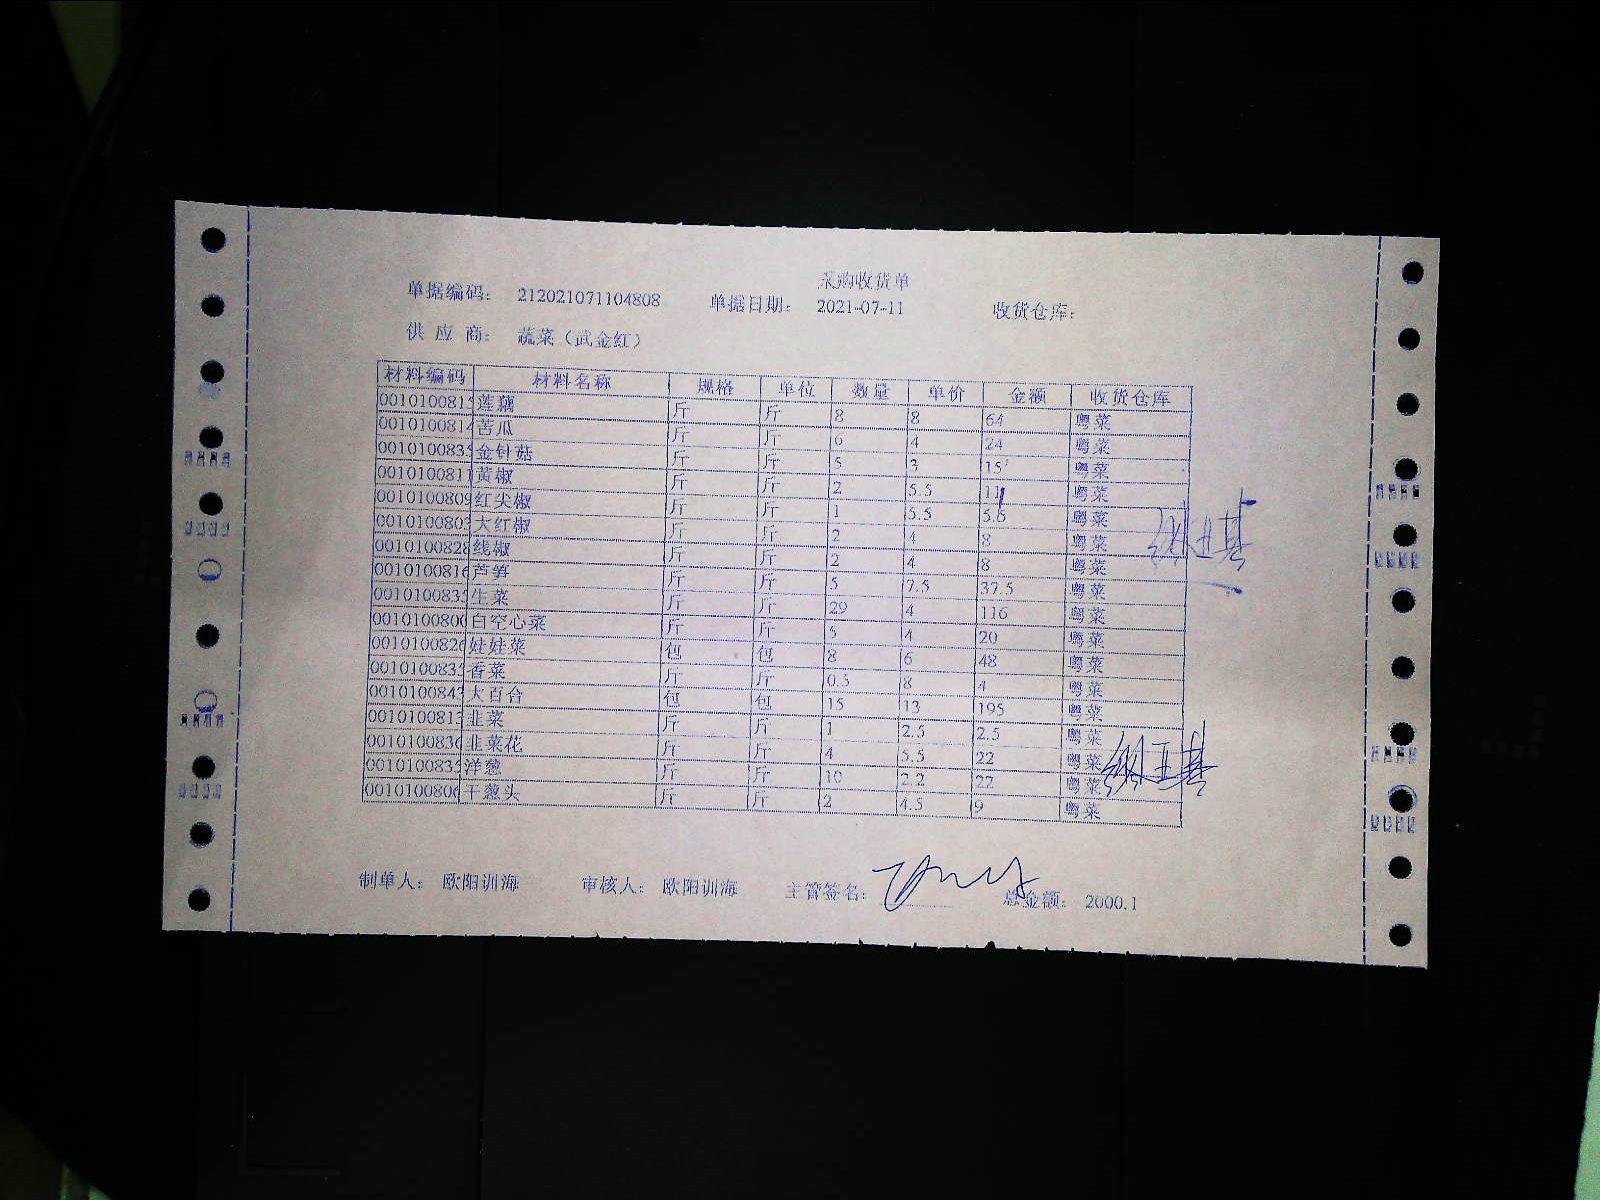 采购收货单
单据编码： 212021071104808 单据日期： 2021-07-11 收货仓库：
供 应 商： 蔬菜（武金红）
材料编码 材料名称 规格 单位 数量 单价 金额 收货仓库
0010100815 莲藕 斤 斤 8 8 64 粤菜
0010100814 苦瓜 斤 斤 6 4 24 粤菜
0010100835 金针菇 斤 斤 5 3 15 粤菜
0010100811 黄椒 斤 斤 2 5.5 11 粤菜
0010100809 红尖椒 斤 斤 1 5.5 5.5 粤菜
0010100803 大红椒 斤 斤 2 4 8 粤菜
0010100828 线椒 斤 斤 2 4 8 粤菜
0010100816 芦笋 斤 斤 5 7.5 37.5 粤菜
0010100835 生菜 斤 斤 29 4 116 粤菜
0010100800 白空心菜 斤 斤 5 4 20 粤菜
0010100826 娃娃菜 包 包 8 6 48 粤菜
0010100833 香菜 斤 斤 0.5 8 4 粤菜
0010100843 大百合 包 包 15 13 195 粤菜
0010100813 韭菜 斤 斤 1 2.5 2.5 粤菜
0010100836 韭菜花 斤 斤 4 5.5 22 粤菜
0010100835 洋葱 斤 斤 10 2.2 22 粤菜
0010100806 干葱头 斤 斤 2 4.5 9 粤菜
制单人： 欧阳训海 审核人： 欧阳训海 主管签名： 总金额： 2000.1